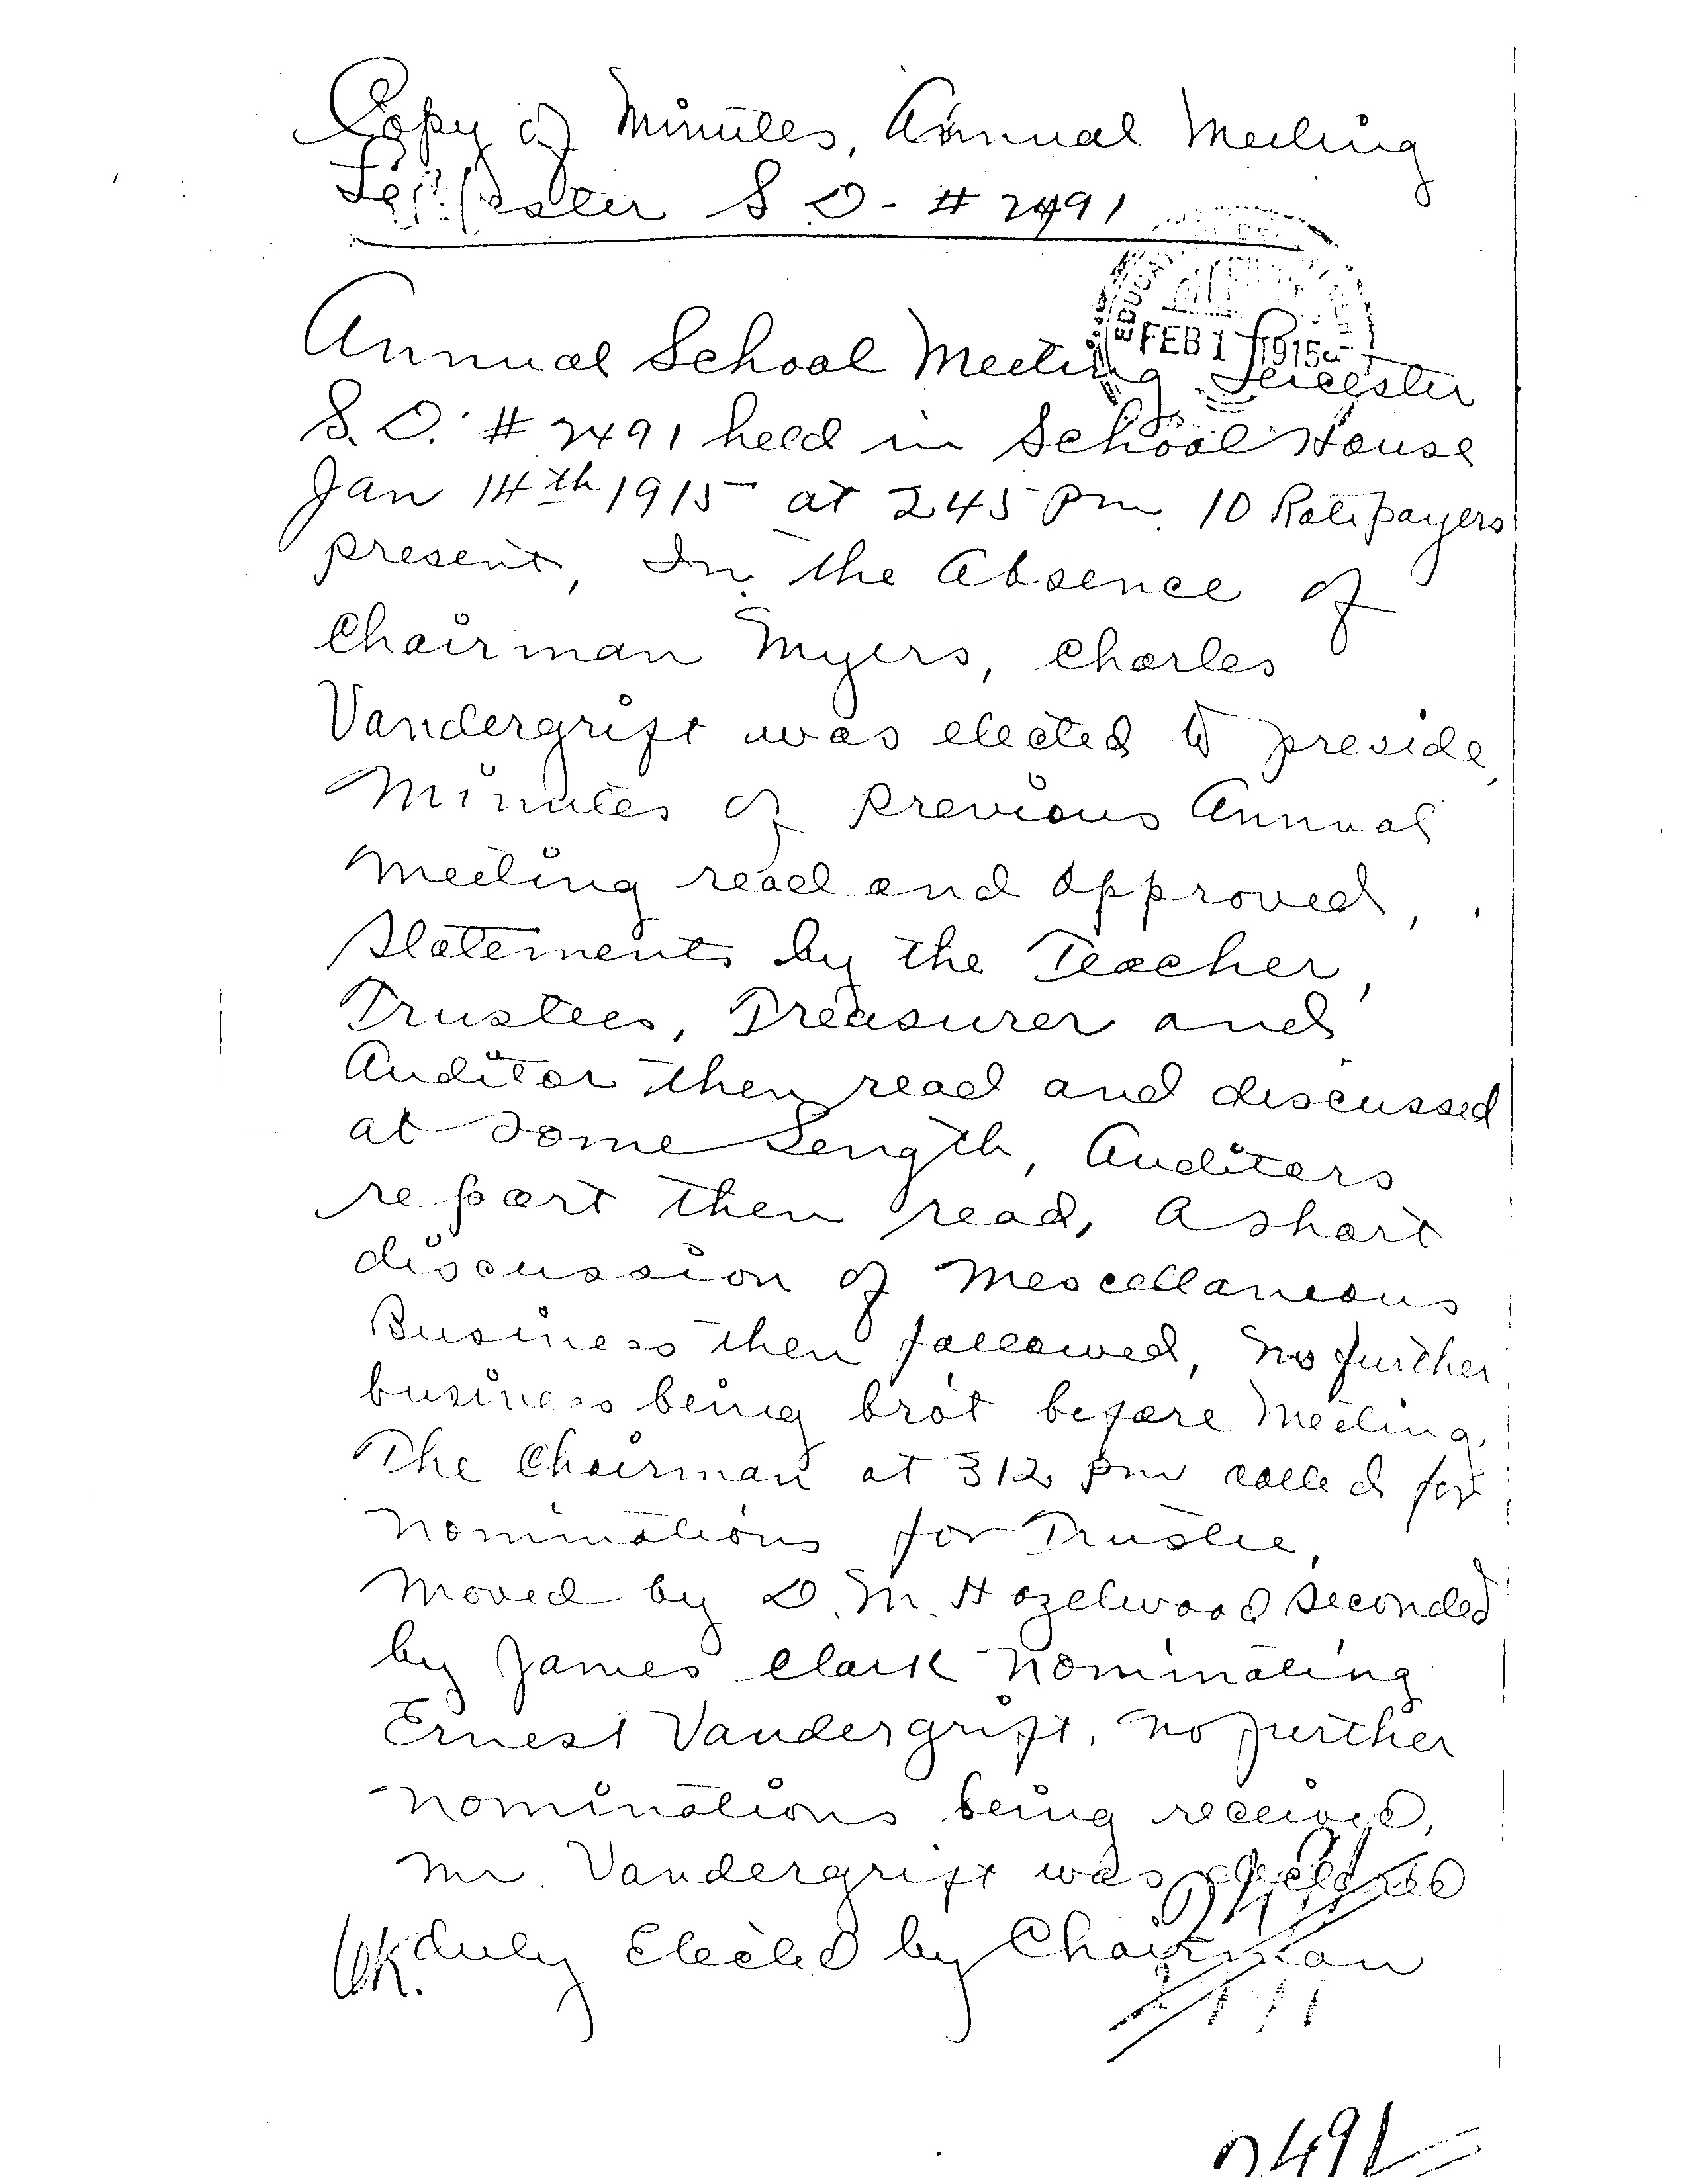 Copy of Minutes, Annual Meeting
Leicester S D - # 2491
EDUCAT
FEB 1 1915
Annual School Meeting Leicester
S. D. # 2491 held in School House
Jan 14th 1915 at 245 Pm. 10 Ratepayers
present, In the Absence of
Chairman Myers, Charles
Vandergrift was elected to preside,
Minutes of Previous Annual
Meeting read and approved,
Statements by the Teacher,
Trustees, Treasurer and
Auditor then read and discussed
at some Length, Auditors
report then read, A short
discussion of Mescellaneous
Business then followed, No further
business being brot before Meeting.
The Chairman at 312 pm called for
Nominations for Trustee,
Moved by D. M. Hazelwood seconded
by James Clark Nominating
Ernest Vandergrift, No further
Nominations being received,
Mr. Vandergrift was declared
OK. duly Elected by Chairman
2491